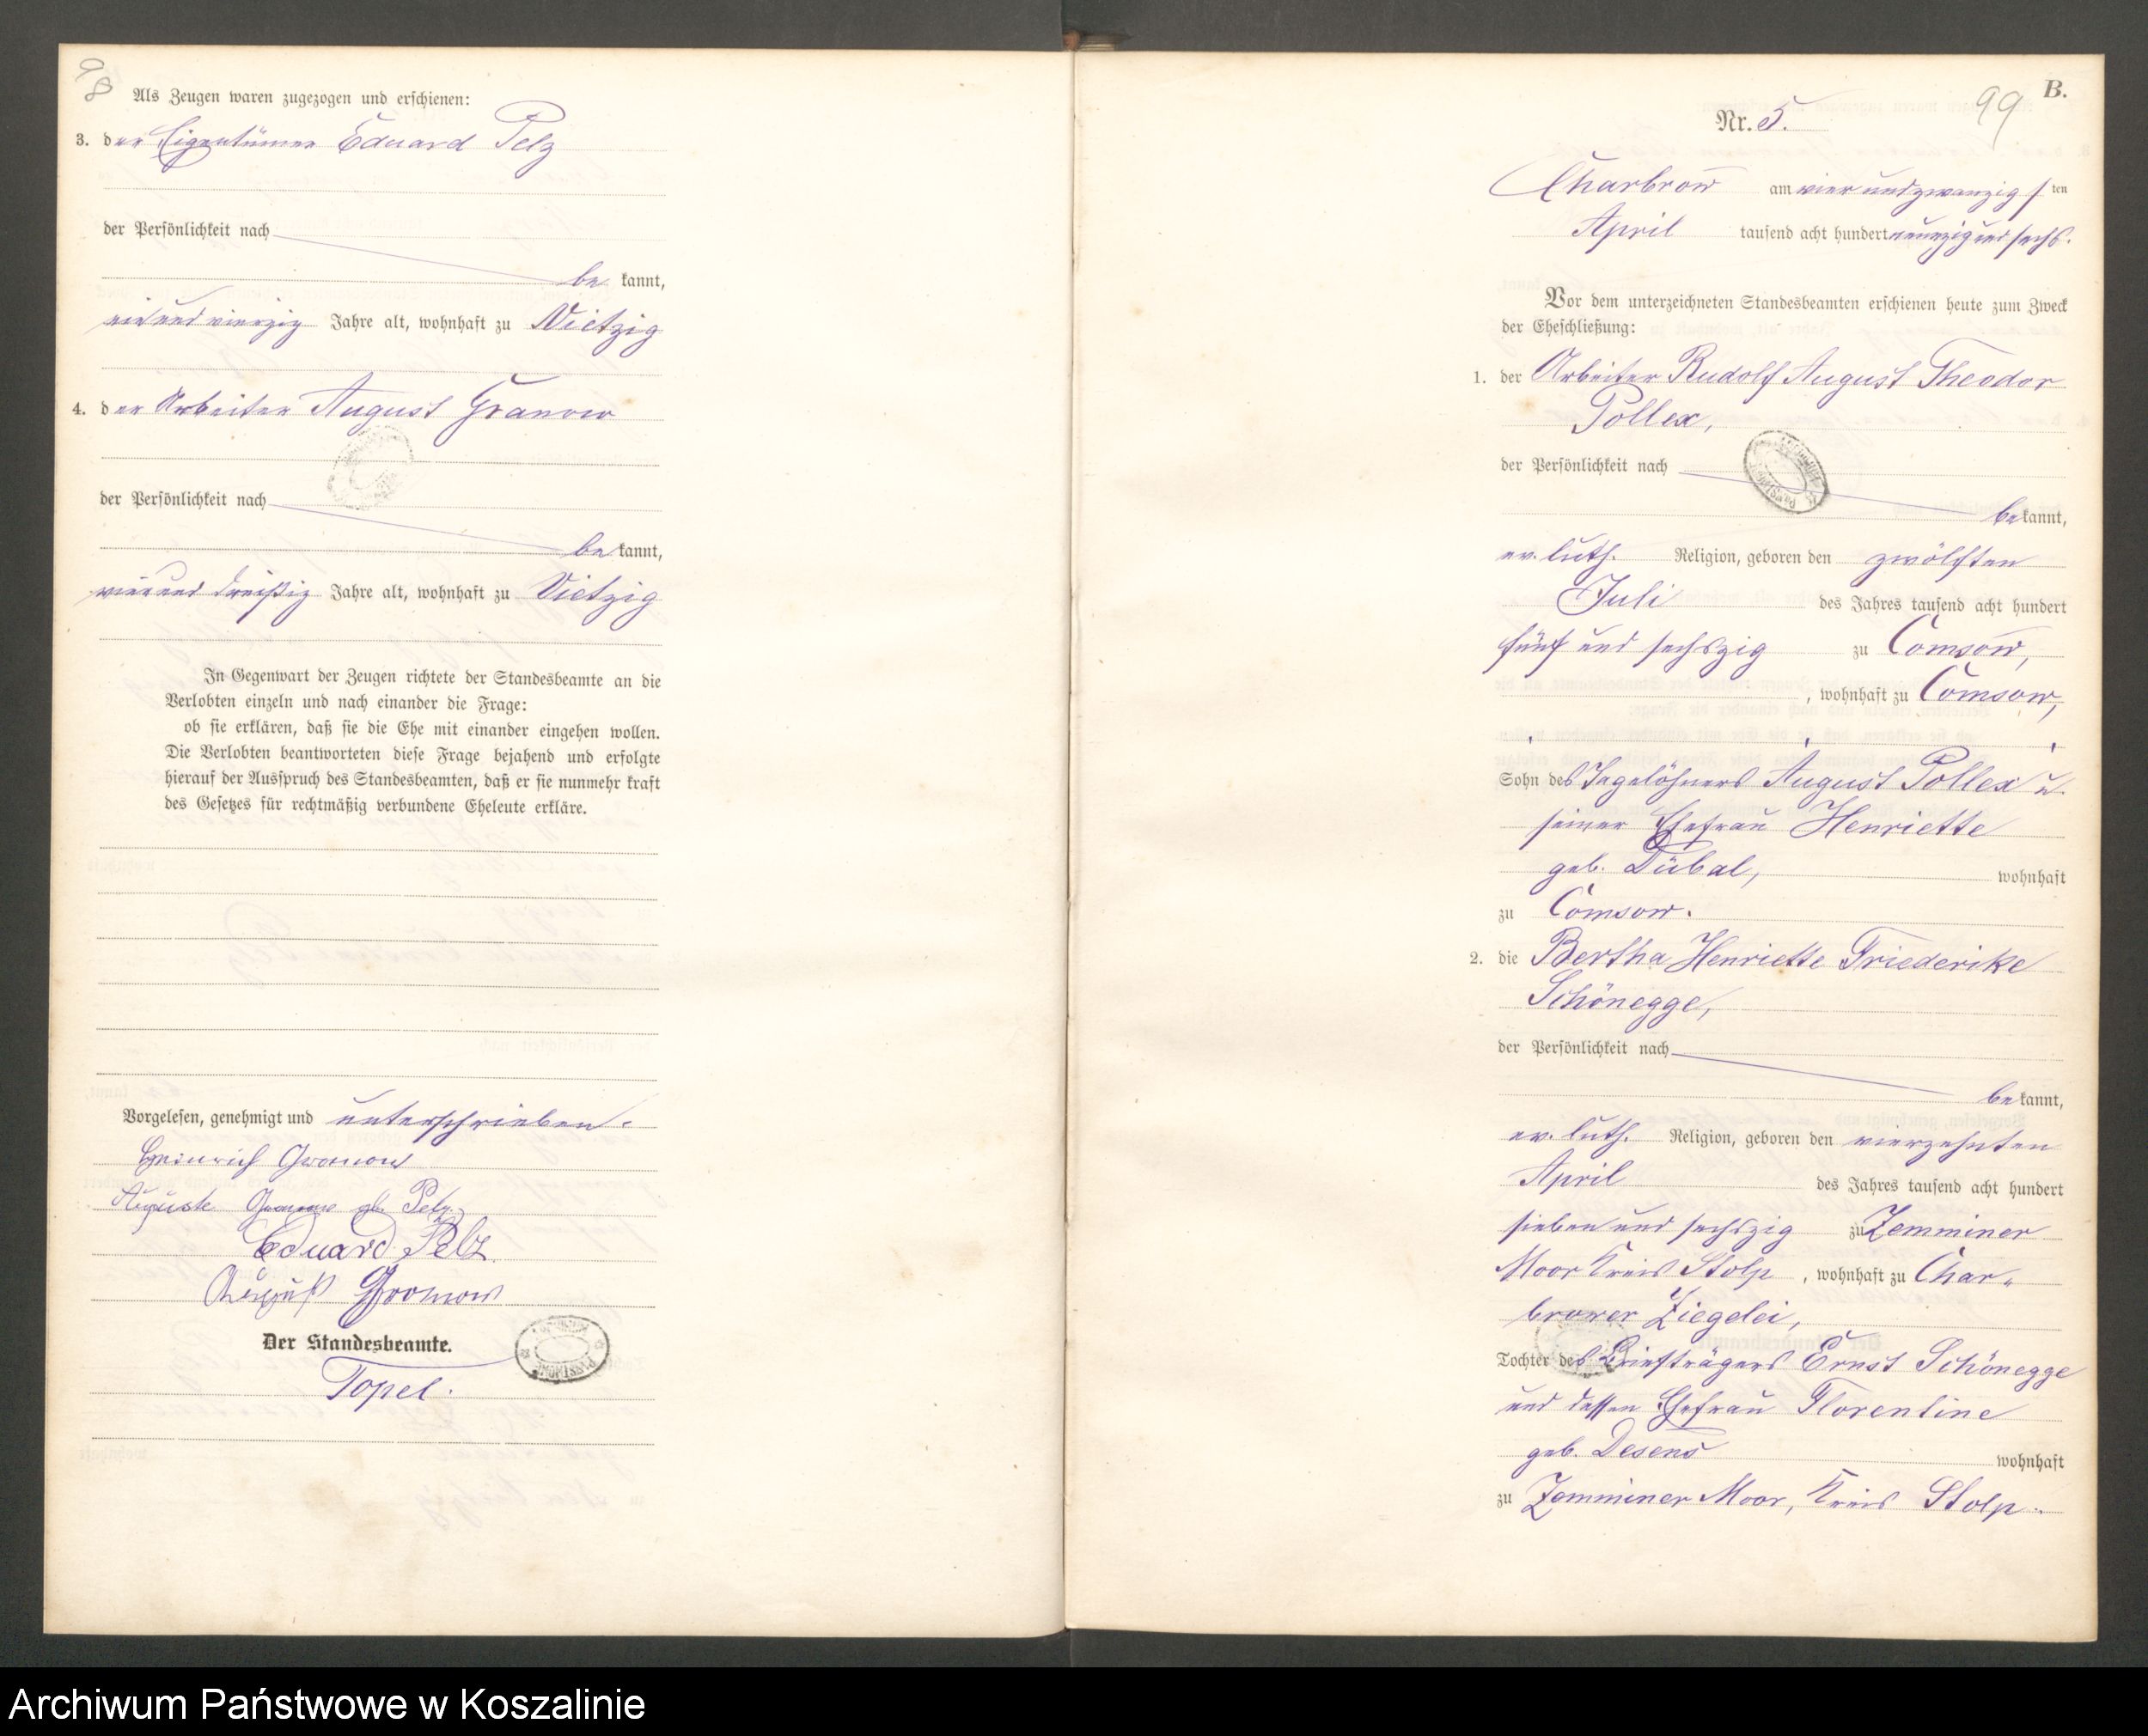 98
Als Zeugen waren zugezogen und erschienen:
3. der Eigentümer Eduard Pelz
der Persönlichkeit nach
be kannt,
ein und vierzig Jahre alt, wohnhaft zu Vietzig
4. der Arbeiter August Granow
der Persönlichkeit nach
be kannt,
vier und dreißig Jahre alt, wohnhaft zu Vietzig
In Gegenwart der Zeugen richtete der Standesbeamte an die
Verlobten einzeln und nach einander die Frage:
ob sie erklären, daß sie die Ehe mit einander eingehen wollen.
Die Verlobten beantworteten diese Frage bejahend und erfolgte
hierauf der Ausspruch des Standesbeamten, daß er sie nunmehr kraft
des Gesetzes für rechtmäßig verbundene Eheleute erkläre.
Vorgelesen, genehmigt und unterschrieben.
Heinrich Granow
Auguste Granow geb. Pelz
Eduard Pelz
August Granow
Der Standesbeamte.
Topel.
B.
99
Nr. 5.
Charbrow am vier und zwanzigsten
April tausend acht hundert neunzig und sechs.
Vor dem unterzeichneten Standesbeamten erschienen heute zum Zweck
der Eheschließung:
1. der Arbeiter Rudolf August Theodor
Pollex,
der Persönlichkeit nach
be kannt,
ev. luth. Religion, geboren den zwölften
Juli des Jahres tausend acht hundert
fünf und sechszig zu Comsow,
, wohnhaft zu Comsow,
Sohn des Tagelöhners August Pollex u.
seiner Ehefrau Henriette
geb. Dübal, wohnhaft
zu Comsow.
2. die Bertha Henriette Friederike
Schönegge,
der Persönlichkeit nach
be kannt,
ev. luth. Religion, geboren den vierzehnten
April des Jahres tausend acht hundert
sieben und sechszig zu Zemminer
Moor Kreis Stolp, wohnhaft zu Char-
brower Ziegelei,
Tochter des Briefträgers Ernst Schönegge
und dessen Ehefrau Florentine
geb. Desens wohnhaft
zu Zemminer Moor, Kreis Stolp.
Archiwum Państwowe w Koszalinie